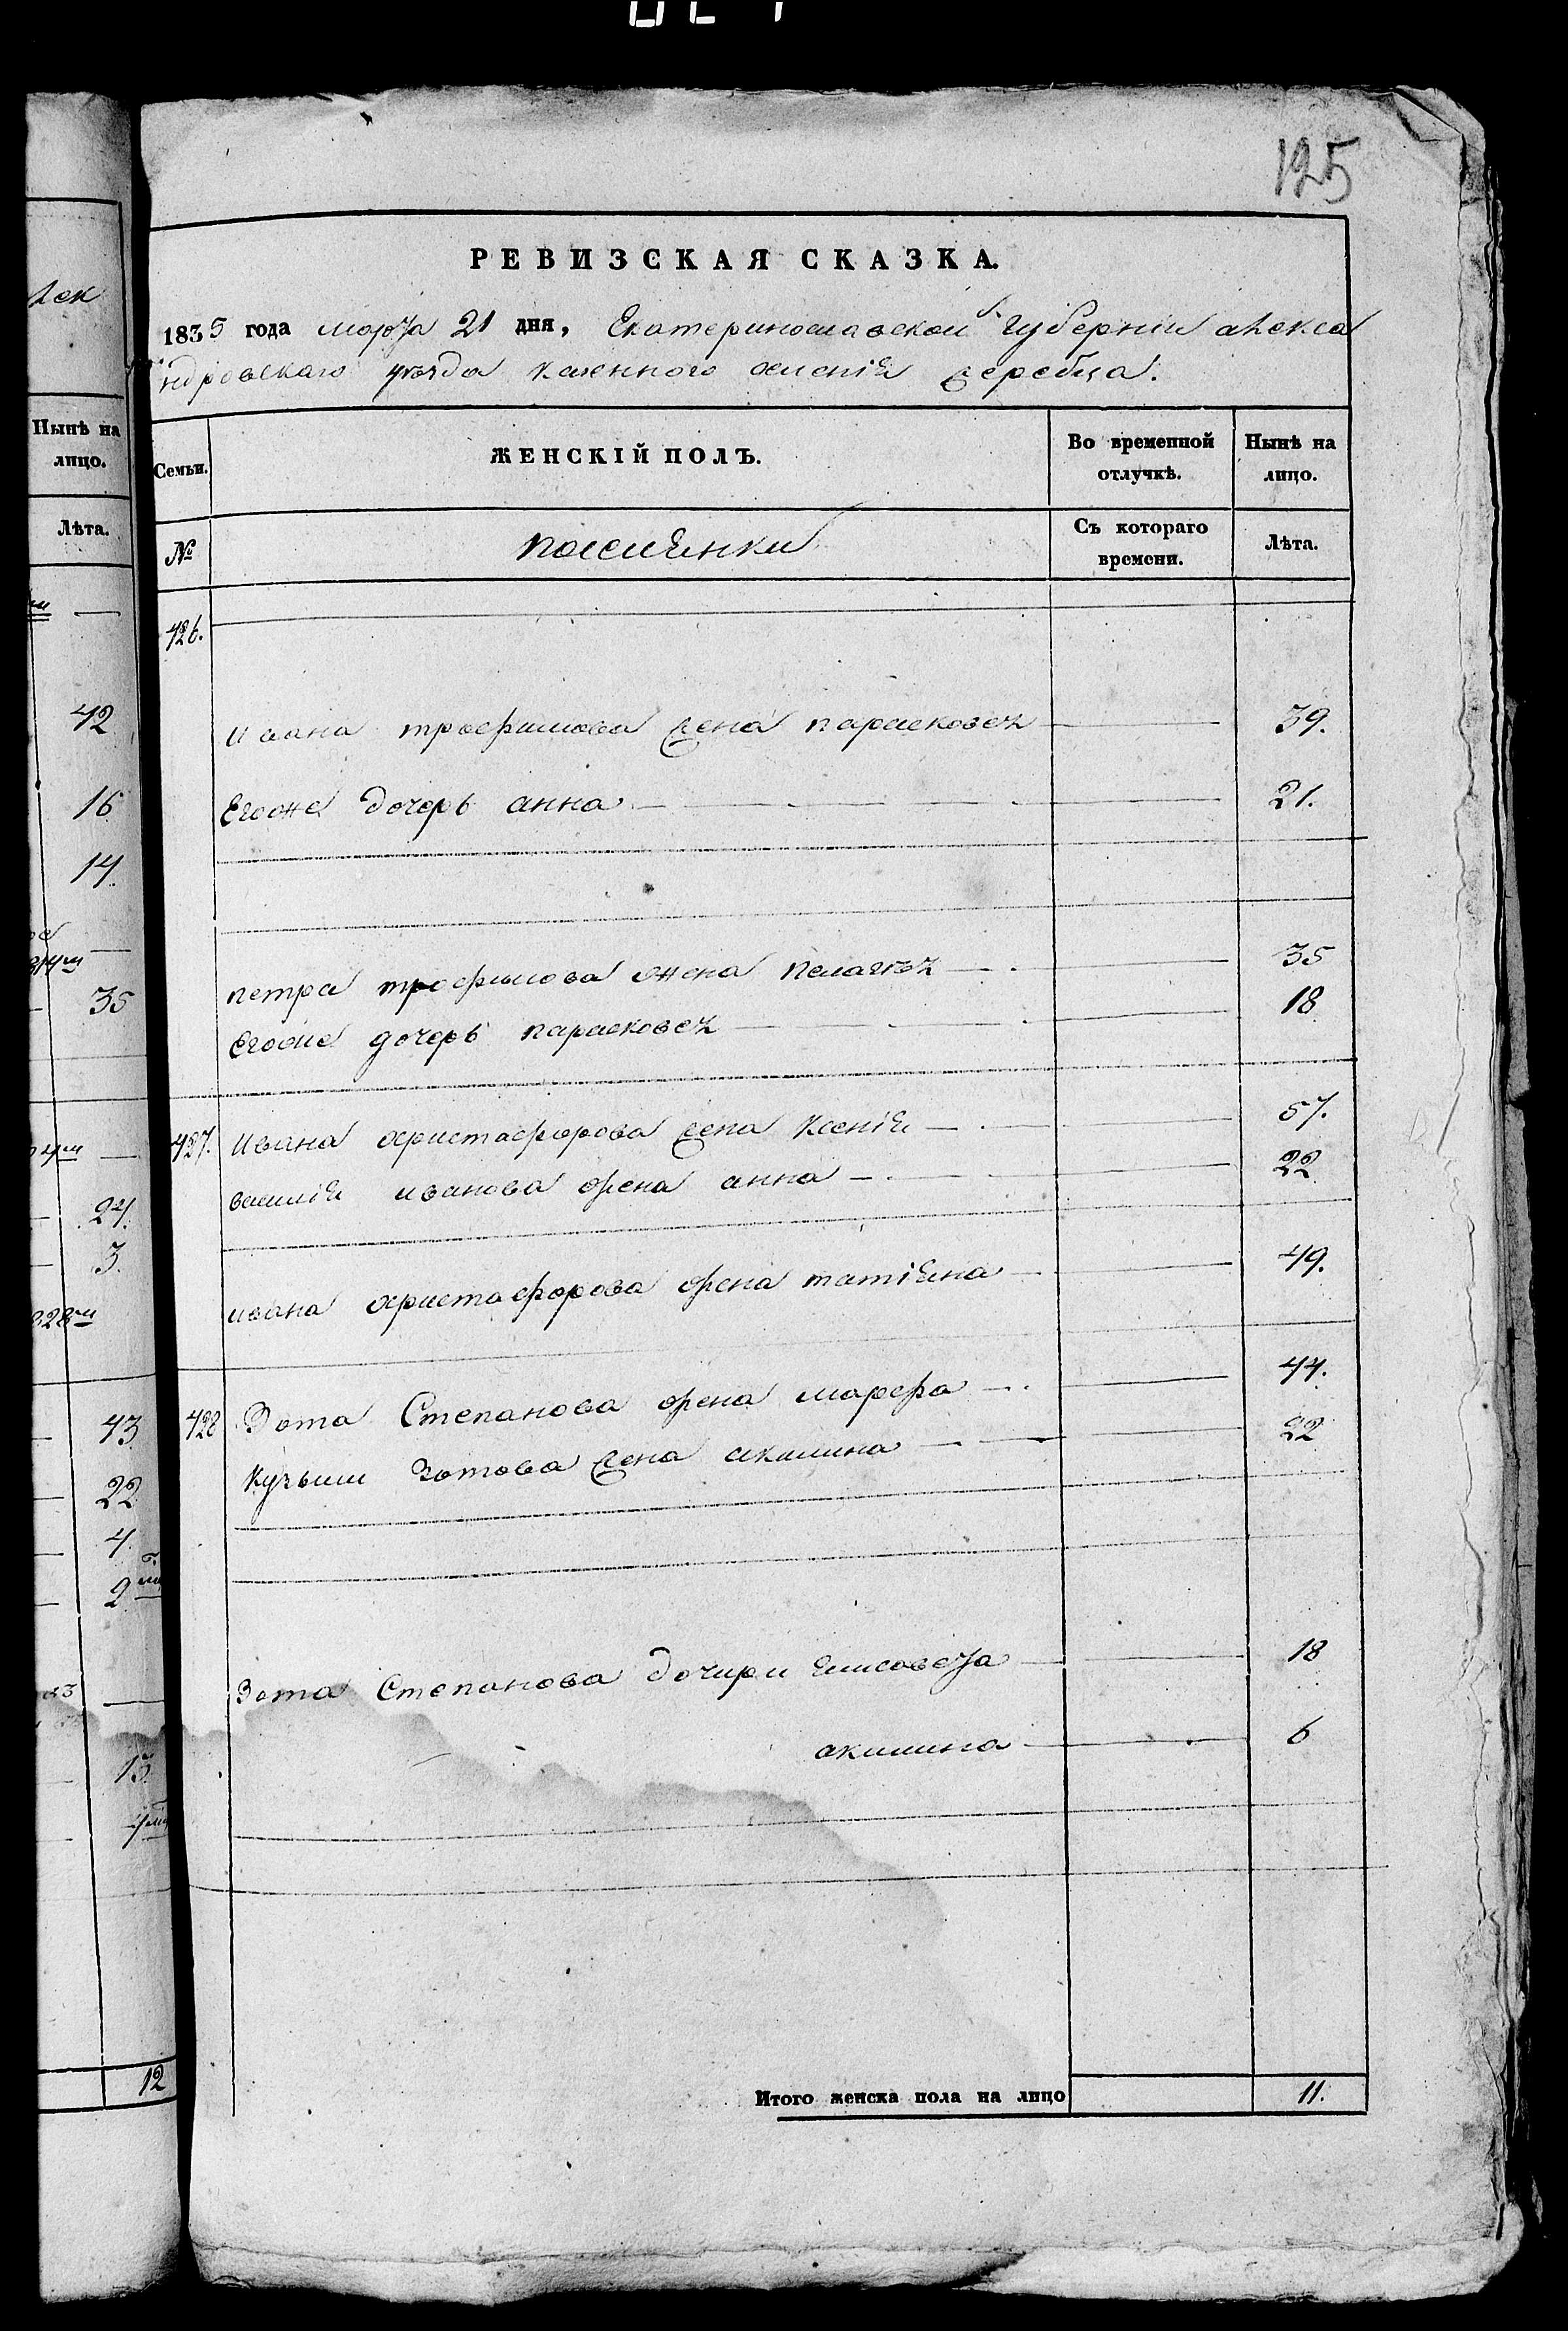 125
РЕВИЗСКАЯ СКАЗКА.
1835 года марта 21 дня, Екатеринославской Губернии алекса
ндровскаго уезда казенного селения жеребца.
Семьи. ЖЕНСКІЙ ПОЛЪ. Во временной отлучкѣ. Нынѣ на лицо.
№ поселянки Съ котораго времени. Лѣта.
426.
ивана трофимова жена парасковея 39.
Егоже дочерь анна 21.
петра трофимова жена пелагея 35
Егоже дочерь парасковея 18
427. Ивана христафорова жена Ксения 57.
василия иванова жена анна 22
ивана христафорова жена татияна 49.
428 Зота Степанова жена марфа 44.
Кузьми Зотова жена акилина 22
Зота Степанова дочири Елисовета 18
акилина 6
Итого женска пола на лицо 11.
лек
Нынѣ на
лицо.
Лѣта.
42
16
14.
35
24.
3.
828го
43
22
4.
2
13.
12